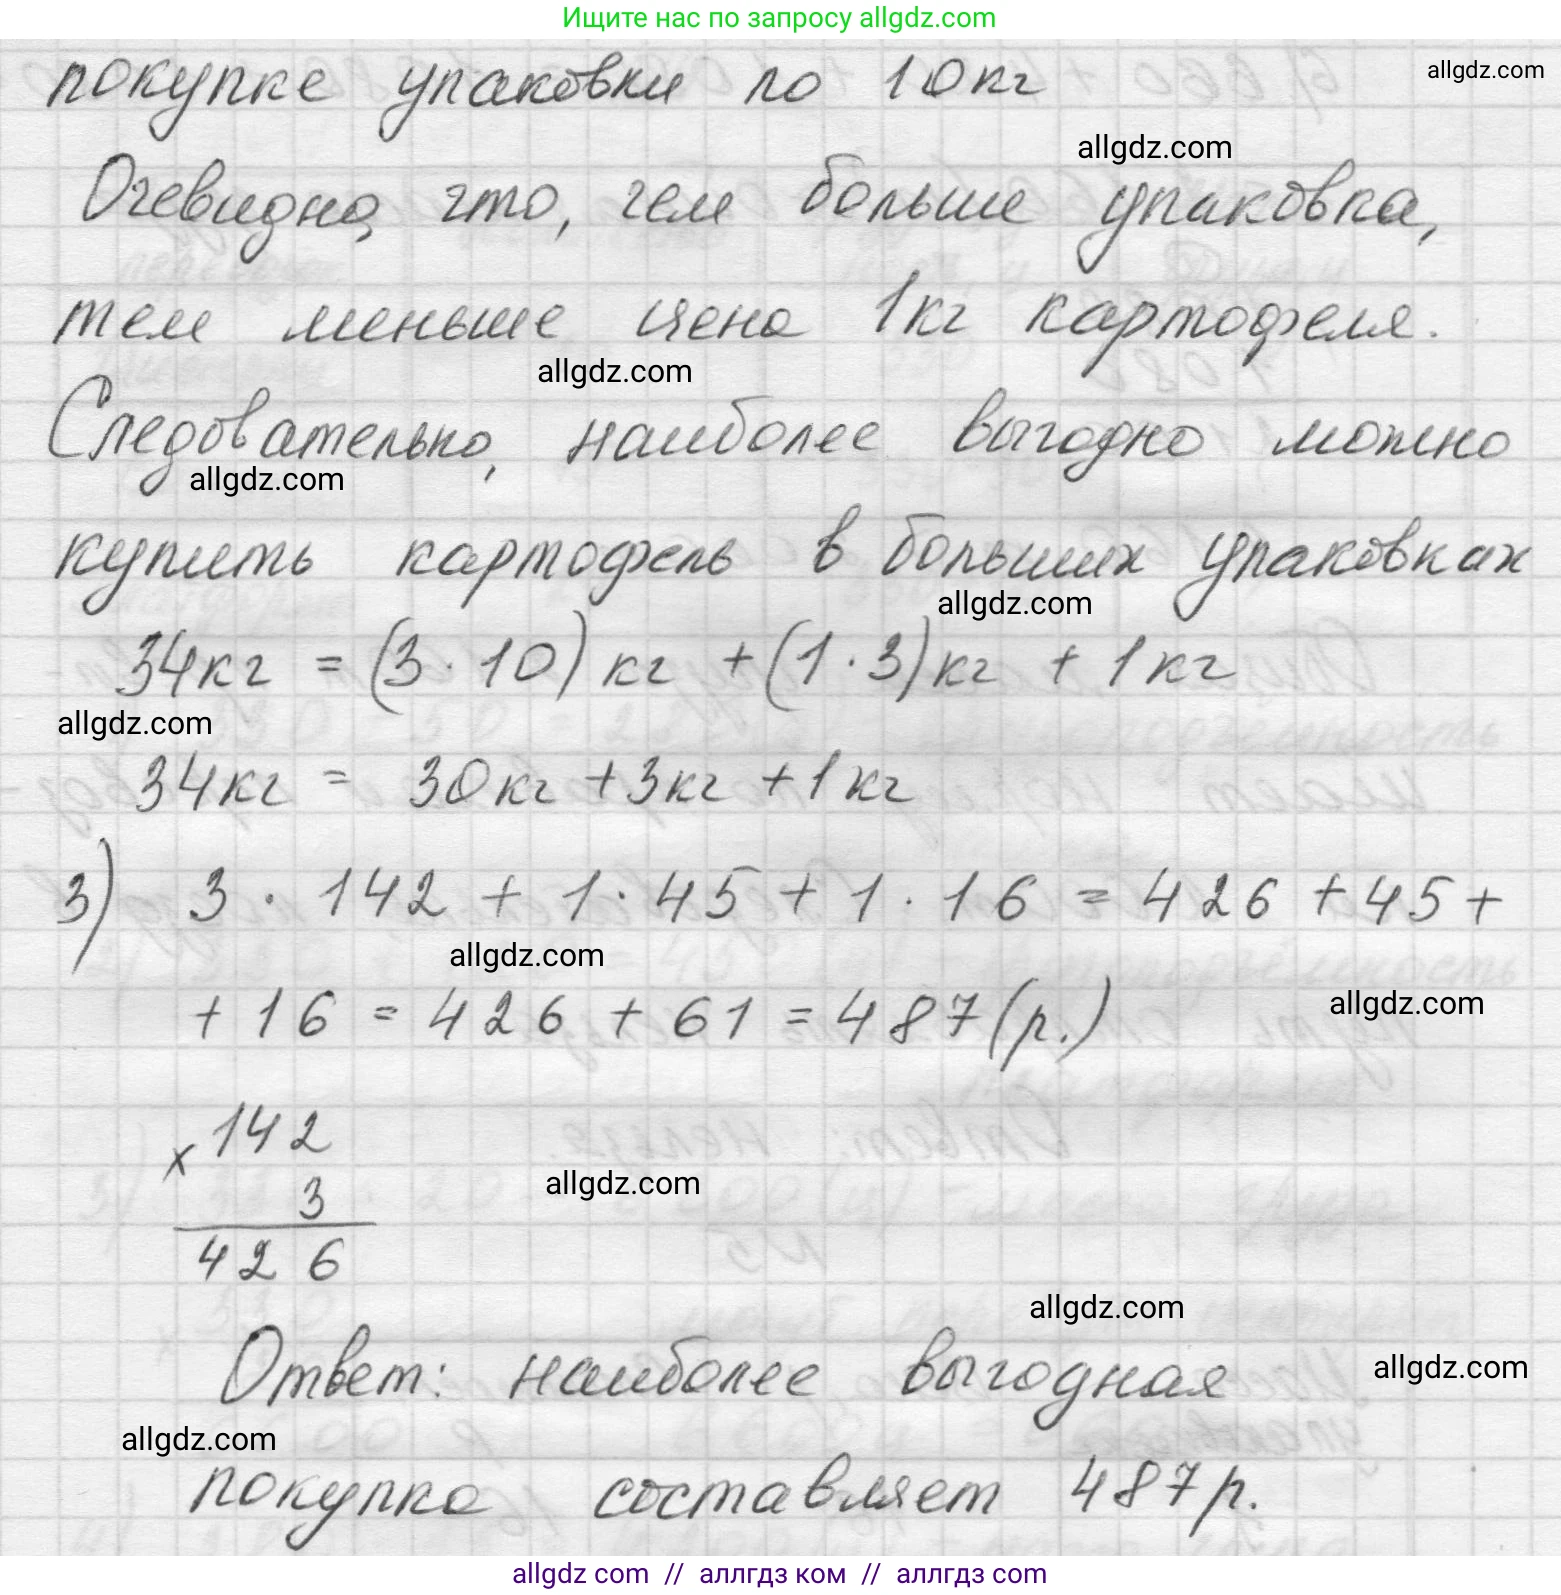 Ищите нас по запросу allgdz.com
покупке упаковки по 10кг
allgdz.com
allgdz.com
Очевидно, что, чем больше упаковка,
тем меньше цена 1кг картофеля.
allgdz.com
Следовательно, наиболее выгодно можно
allgdz.com
купить картофель в больших упаковках
allgdz.com
34кг = (3 · 10) кг + (1 · 3) кг + 1 кг
allgdz.com
34кг = 30кг + 3кг + 1 кг
3) 3 · 142 + 1 · 45 + 1 · 16 = 426 + 45 +
allgdz.com
+ 16 = 426 + 61 = 487 (р.)
allgdz.com
x 142
3
allgdz.com
426
allgdz.com
Ответ: наиболее выгодная
allgdz.com
allgdz.com
покупка составляет 487 р.
allgdz.com // аллгдз ком // аллгдз.com